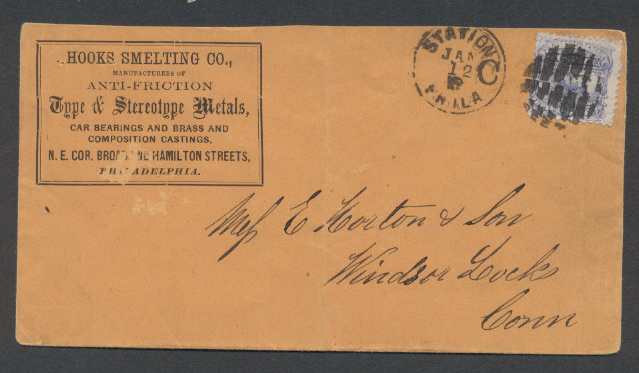 HOOKS SMELTING CO.,
MANUFACTURERS OF
ANTI-FRICTION
Type & Stereotype Metals,
CAR BEARINGS AND BRASS AND
COMPOSITION CASTINGS,
N. E. COR. BROAD AND HAMILTON STREETS,
PHILADELPHIA.
STATION C
JAN
12
PHILA
Mess E Horton & Son
Windsor Locks
Conn